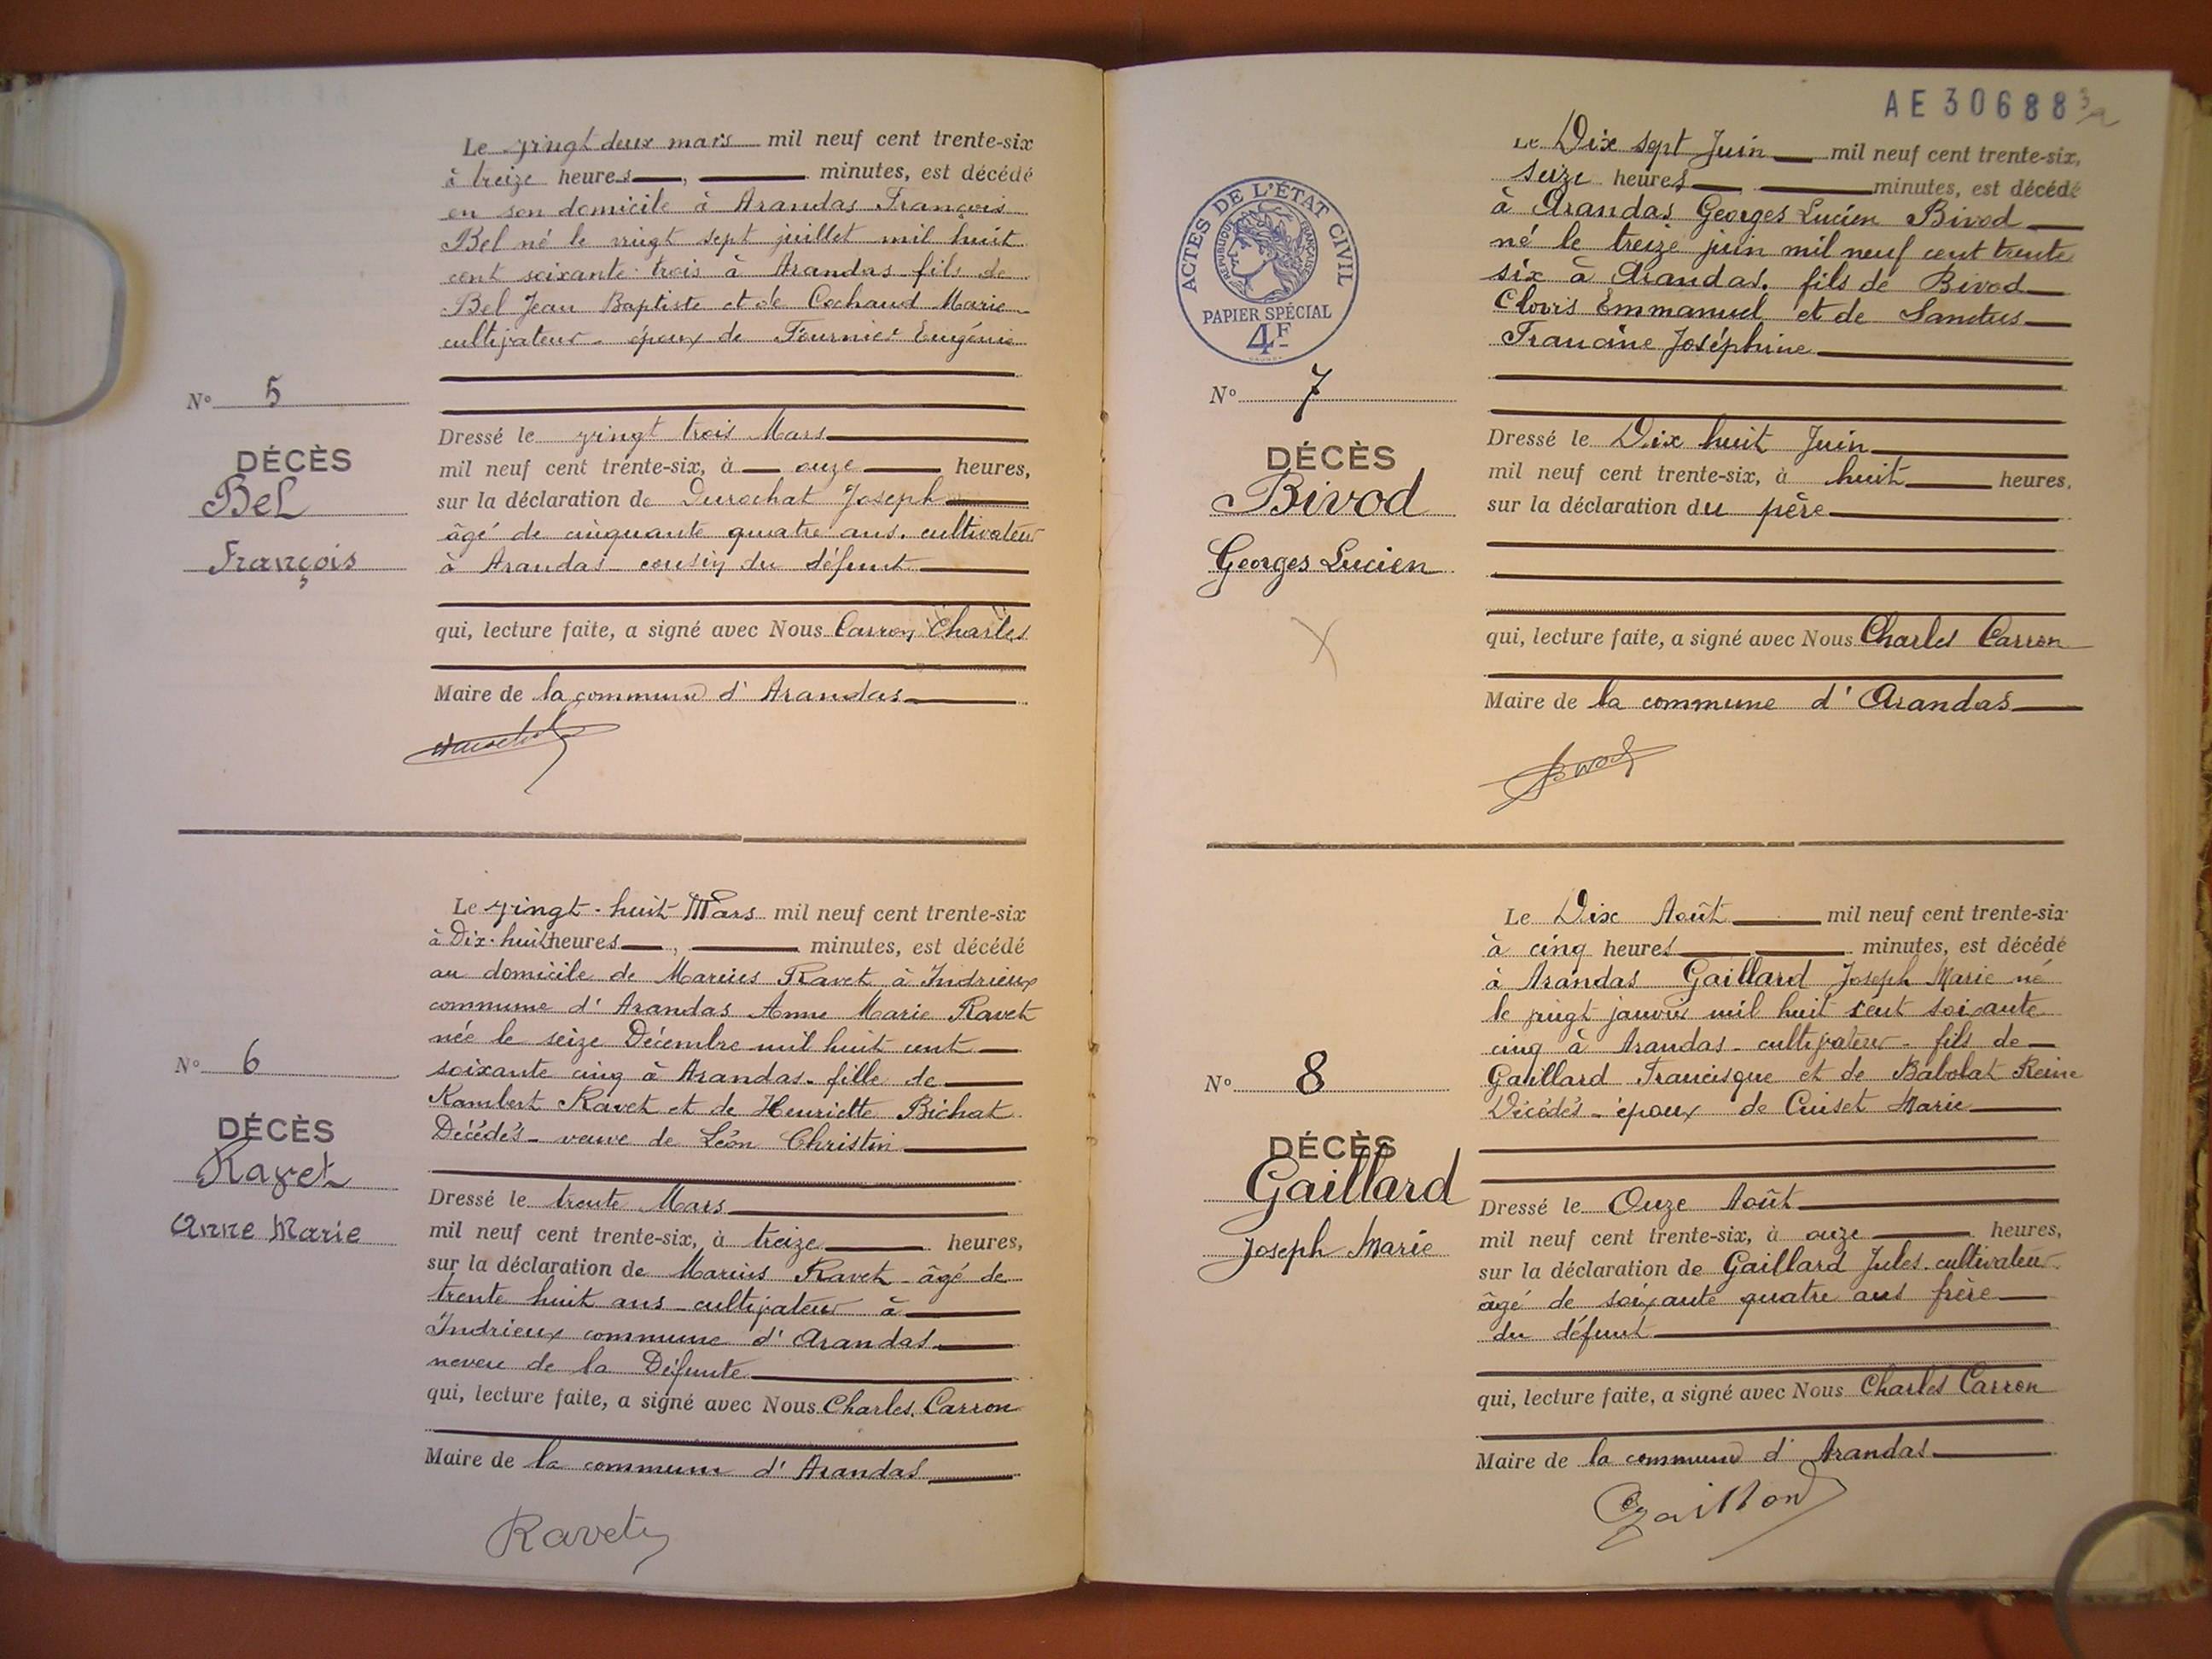 Le vingt deux mars mil neuf cent trente-six
à treize heures, minutes, est décédé
en son domicile à Arandas François
Bel né le vingt sept juillet mil huit
cent soixante trois à Arandas fils de
Bel Jean Baptiste et de Cochaud Marie
cultivateur - époux de Fournier Eugénie
N° 5
DÉCÈS
Bel
François
Dressé le vingt trois Mars
mil neuf cent trente-six, à onze heures,
sur la déclaration de Durochat Joseph
âgé de cinquante quatre ans. cultivateur
à Arandas cousin du défunt
qui, lecture faite, a signé avec Nous Carron Charles
Maire de la commune d'Arandas
Le vingt-huit Mars mil neuf cent trente-six
à Dix-huit heures, minutes, est décédé
au domicile de Marius Ravet à Indrieux
commune d'Arandas Anne Marie Ravet
née le seize Décembre mil huit cent
soixante cinq à Arandas. fille de
Rambert Ravet et de Henriette Bichat
Décédés - veuve de Léon Christin
N° 6
DÉCÈS
Ravet
Anne Marie
Dressé le trente Mars
mil neuf cent trente-six, à treize heures,
sur la déclaration de Marius Ravet - âgé de
trente huit ans - cultivateur à
Indrieux commune d'Arandas
neveu de la Défunte
qui, lecture faite, a signé avec Nous Charles Carron
Maire de la commune d'Arandas
Ravet
AE 30688
ACTES DE L'ÉTAT CIVIL
RÉPUBLIQUE FRANÇAISE
PAPIER SPÉCIAL
4F
Le Dix sept Juin mil neuf cent trente-six,
seize heures minutes, est décédé
à Arandas Georges Lucien Bivod
né le treize juin mil neuf cent trente
six à Arandas. fils de Bivod
Clovis Emmanuel et de Sanctus
Francine Joséphine
N° 7
DÉCÈS
Bivod
Georges Lucien
Dressé le Dix huit Juin
mil neuf cent trente-six, à huit heures,
sur la déclaration du père
qui, lecture faite, a signé avec Nous Charles Carron
Maire de la commune d'Arandas
Bivod
Le Dix Août mil neuf cent trente-six
à cinq heures minutes, est décédé
à Arandas Gaillard Joseph Marie né
le vingt janvier mil huit cent soixante
cinq à Arandas - cultivateur - fils de
Gaillard Francisque et de Babolat Reine
Décédés - époux de Cuiset Marie
N° 8
DÉCÈS
Gaillard
Joseph Marie
Dressé le Onze Août
mil neuf cent trente-six, à onze heures,
sur la déclaration de Gaillard Jules. cultivateur
âgé de soixante quatre ans frère
du défunt
qui, lecture faite, a signé avec Nous Charles Carron
Maire de la commune d'Arandas
Gaillard